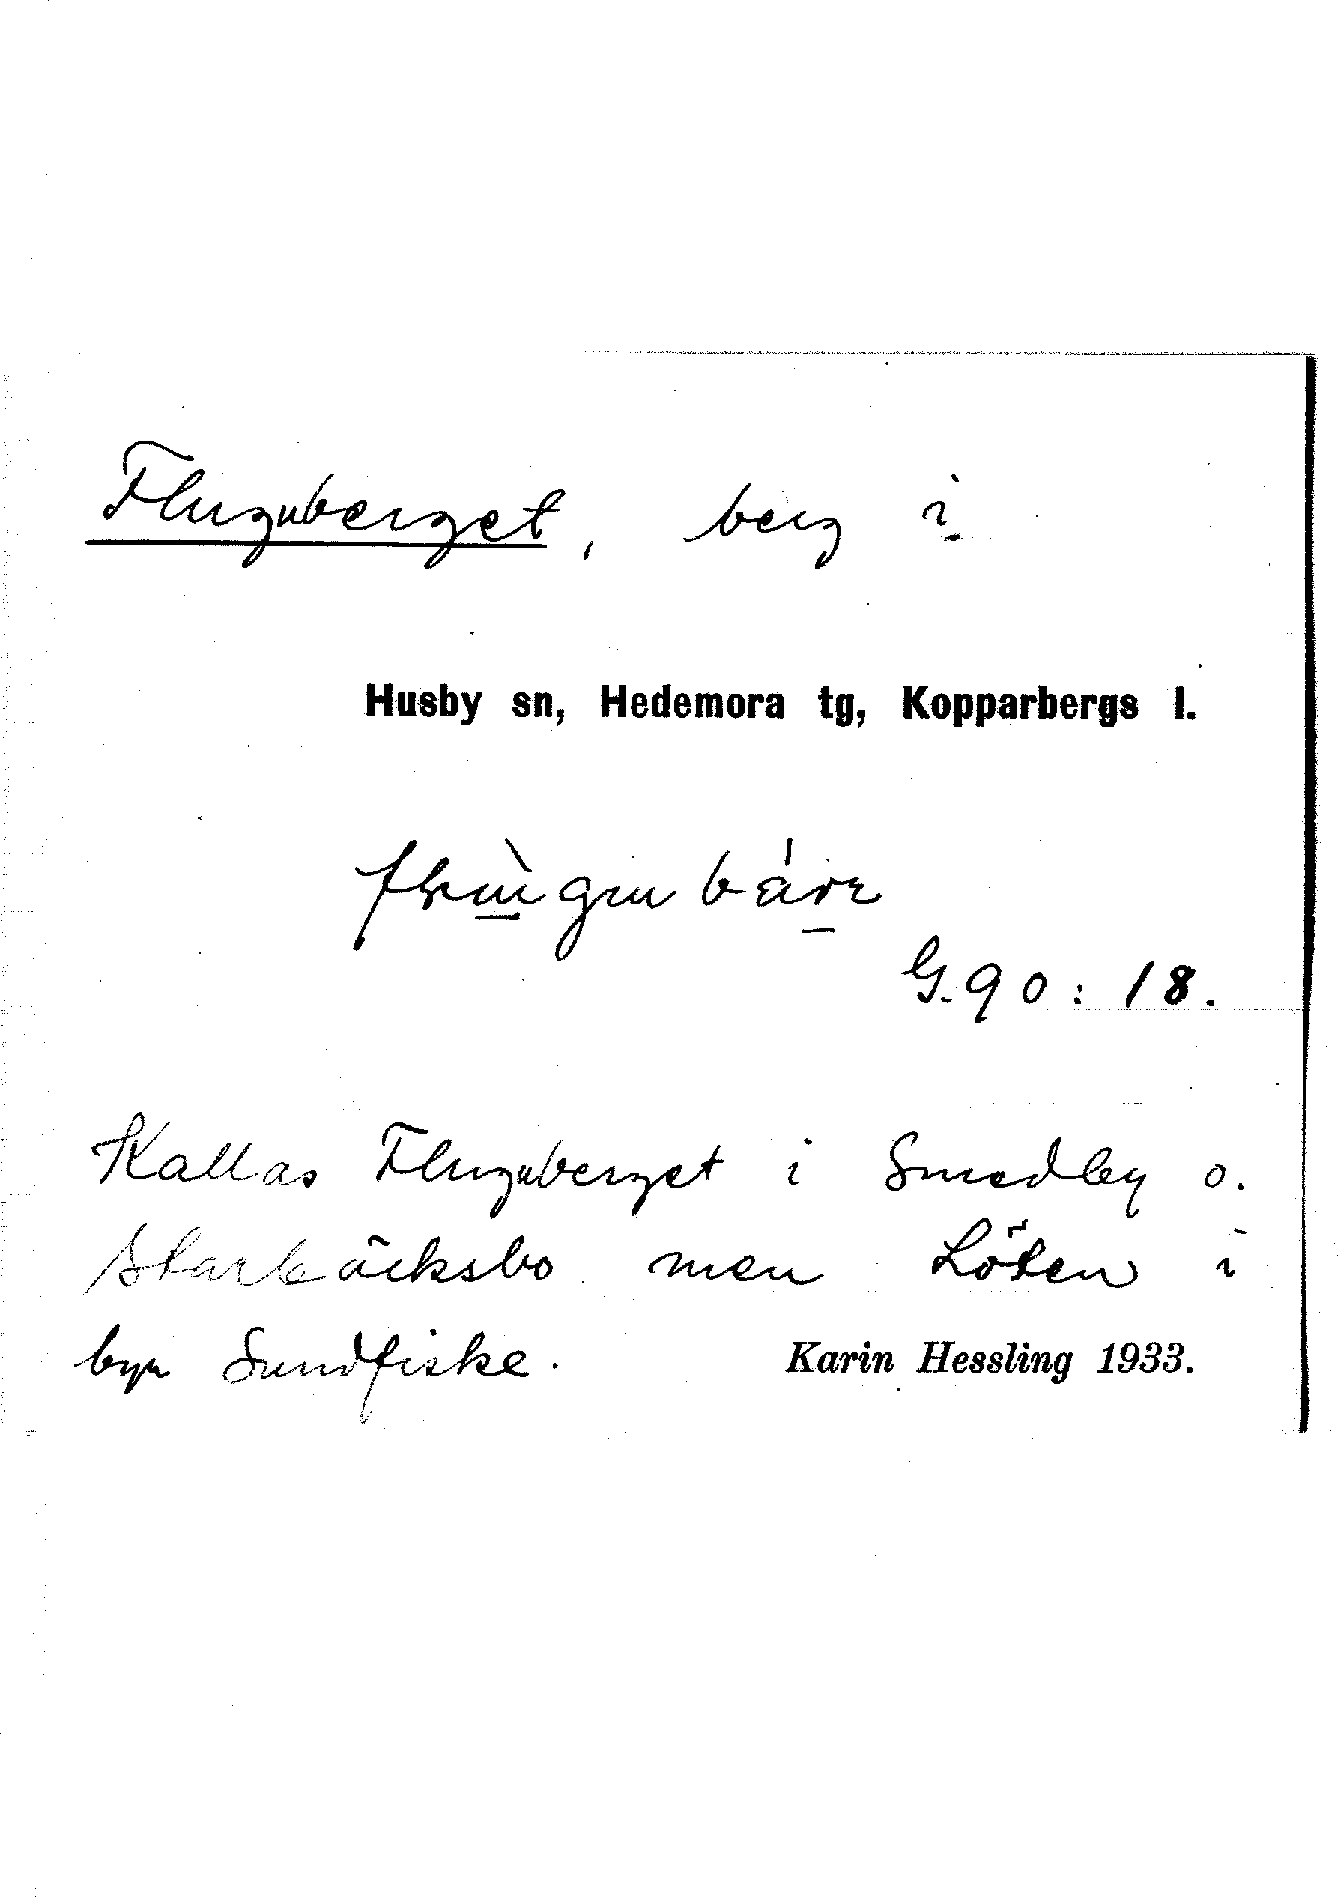 Fluguberget, berg i
Husby sn, Hedemora tg, Kopparbergs l.
G. 90:18.
Kallas Fluguberget i Smedby o.
Starbäcksbo men Löten i
byn Sundfiske. Karin Hessling 1933.